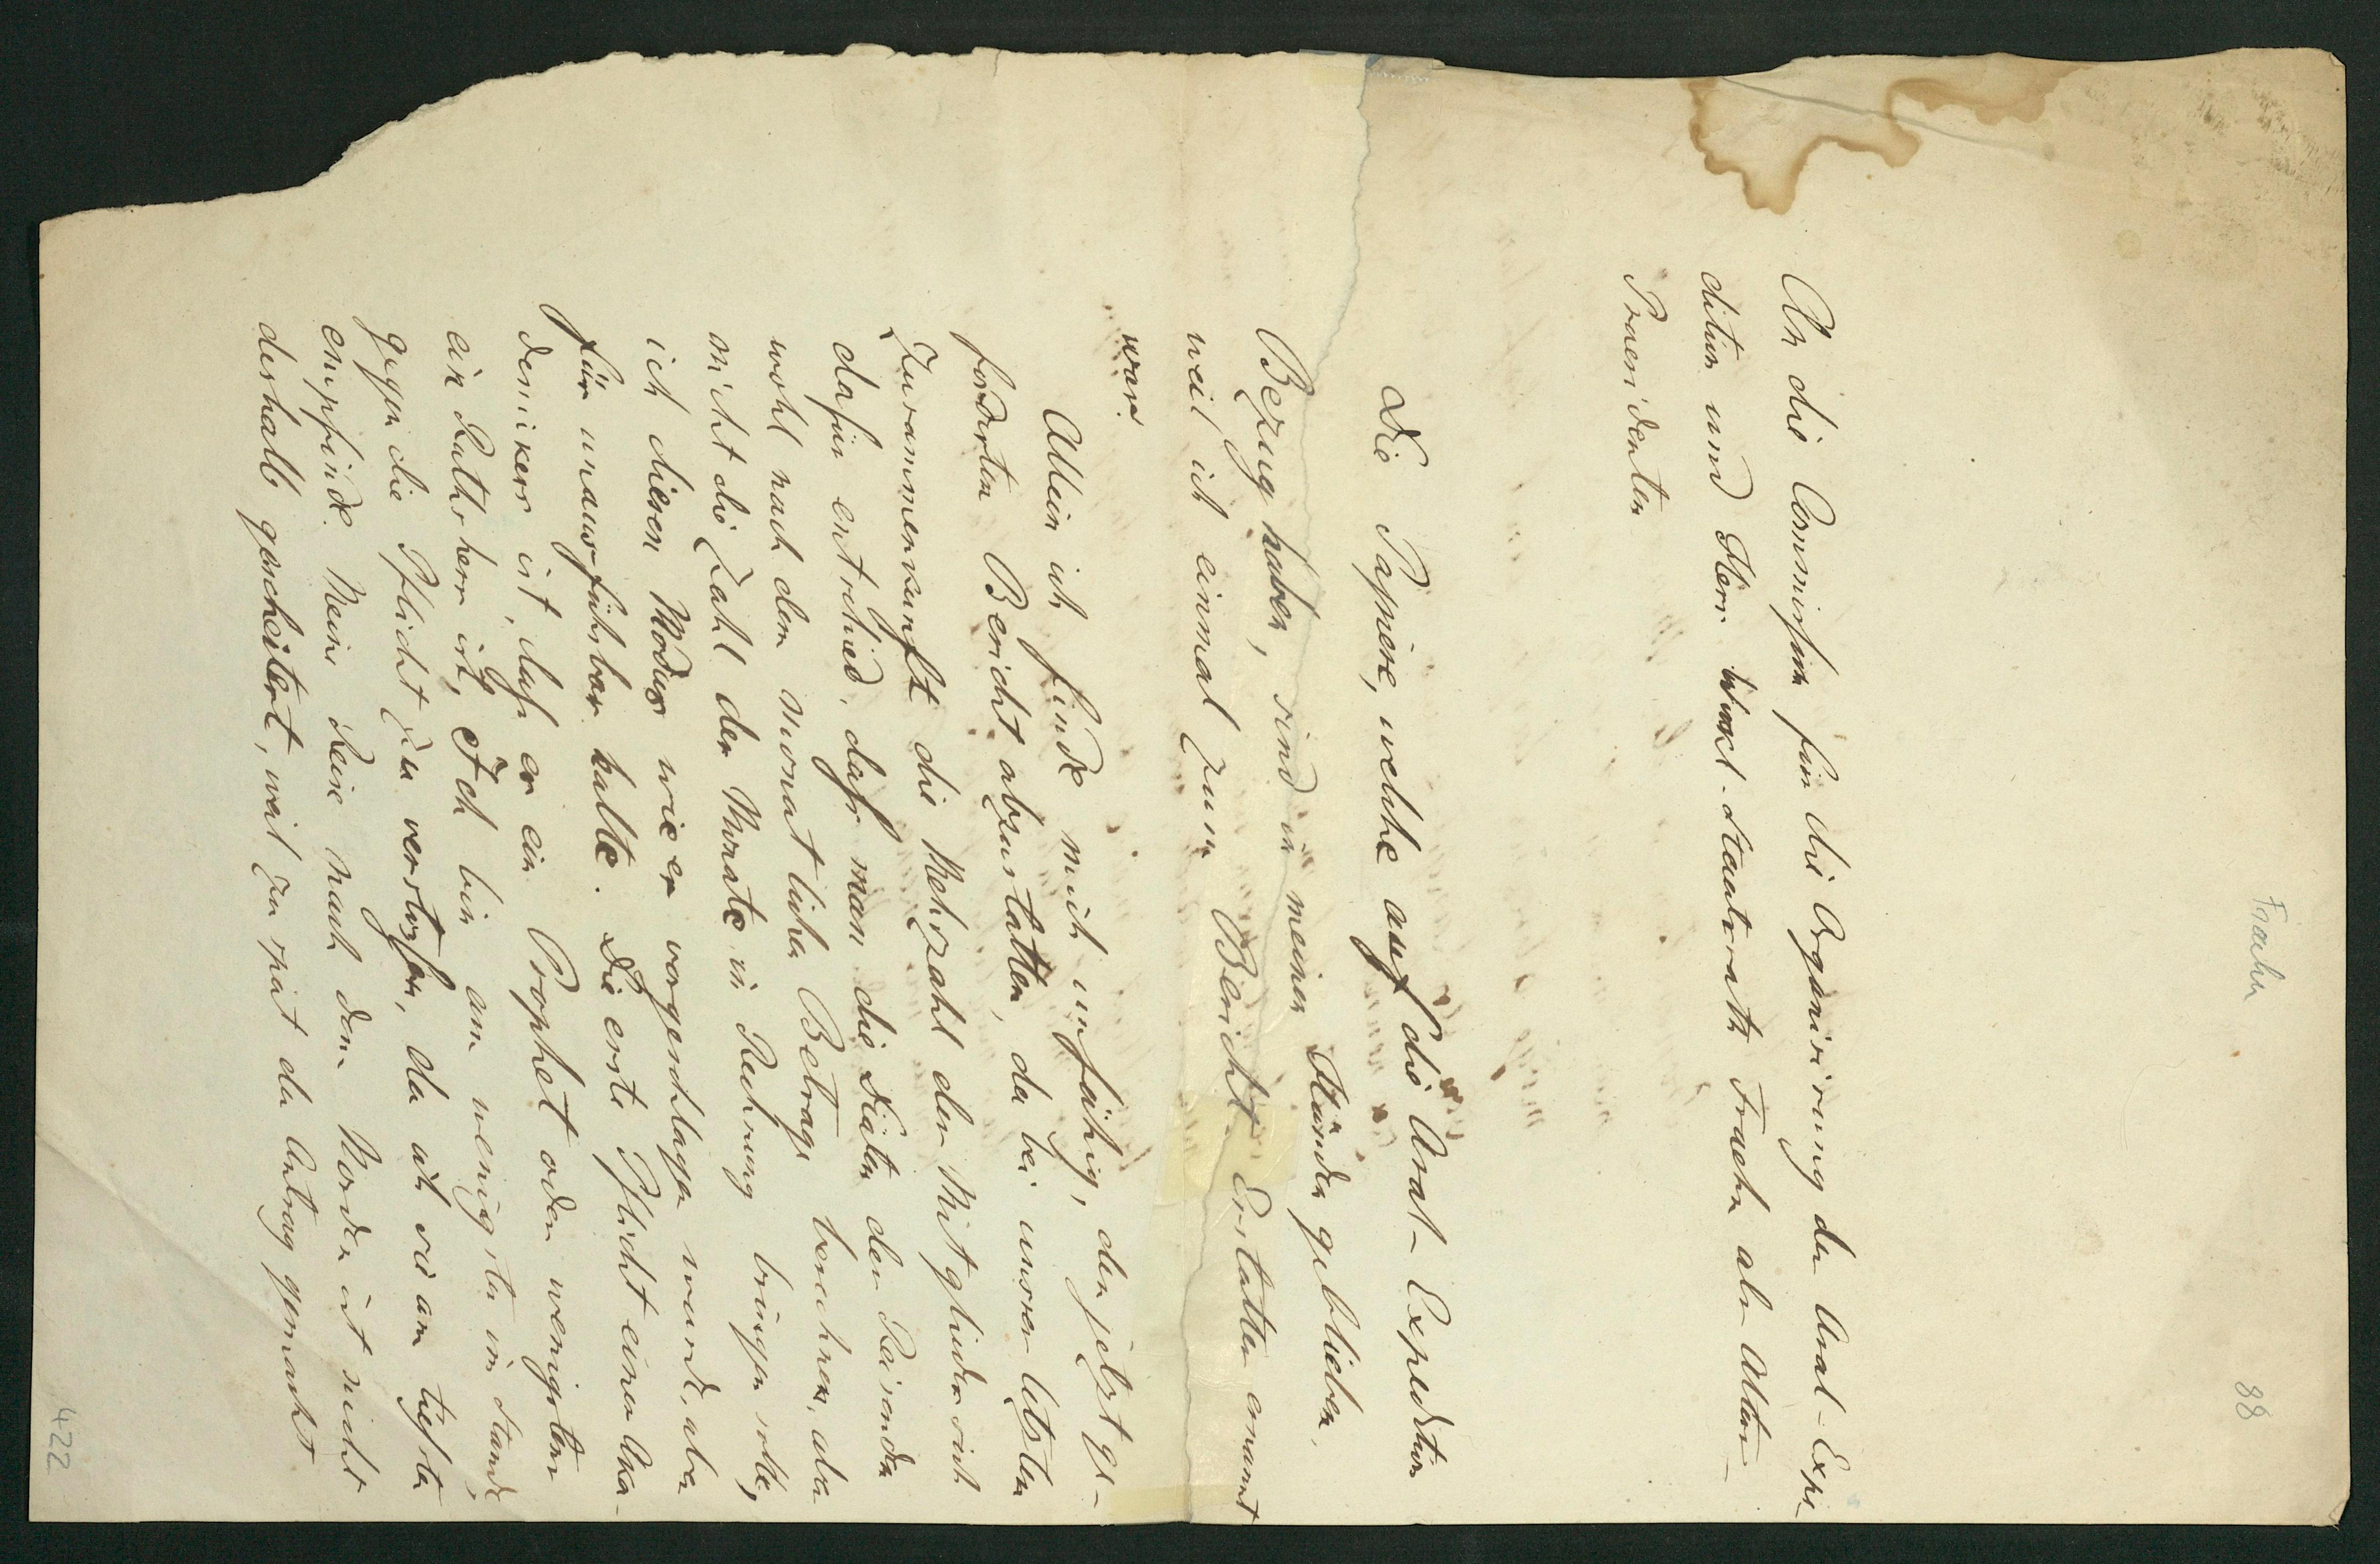 Fraehn
88
An die Commission für die Organisirung der Aral-Expe-
dition und Herr Wirkl. Staatsrath Fraehn als Alters-
Praesidenten
Die Papiere, welche auf die Aral-Expedition
Bezug haben, sind in meinen Händen geblieben,
weil ich einmal zum Bericht Erstatten ernannt
war.
Allein ich finde mich unfähig, den jetzt ge-
forderten Bericht abzustatten, da bei unsrer letzten
Zusammenkunft die Mehrzahl der Mitglieder sich
dafür entschied, dass man die Diäten der Reisenden
wohl nach dem monatlichen Betrage berechnen, aber
nicht die Zahl der Monate in Rechnung bringen solle,
ich diesen Modus wie er vorgeschlagen wurde, aber
für unausführbar halte. Die erste Pflicht eines Aka-
demikers ist, dass er ein Prophet oder wenigstens
ein Rathsherr ist, Ich bin am wenigsten im Stande,
gegen die Pflicht zu verstossen, da ich sie am tiefsten
empfinde. Meine Reise nach dem Norden ist nicht
deshalb gescheitert, weil zu spät der Antrag gemacht
422